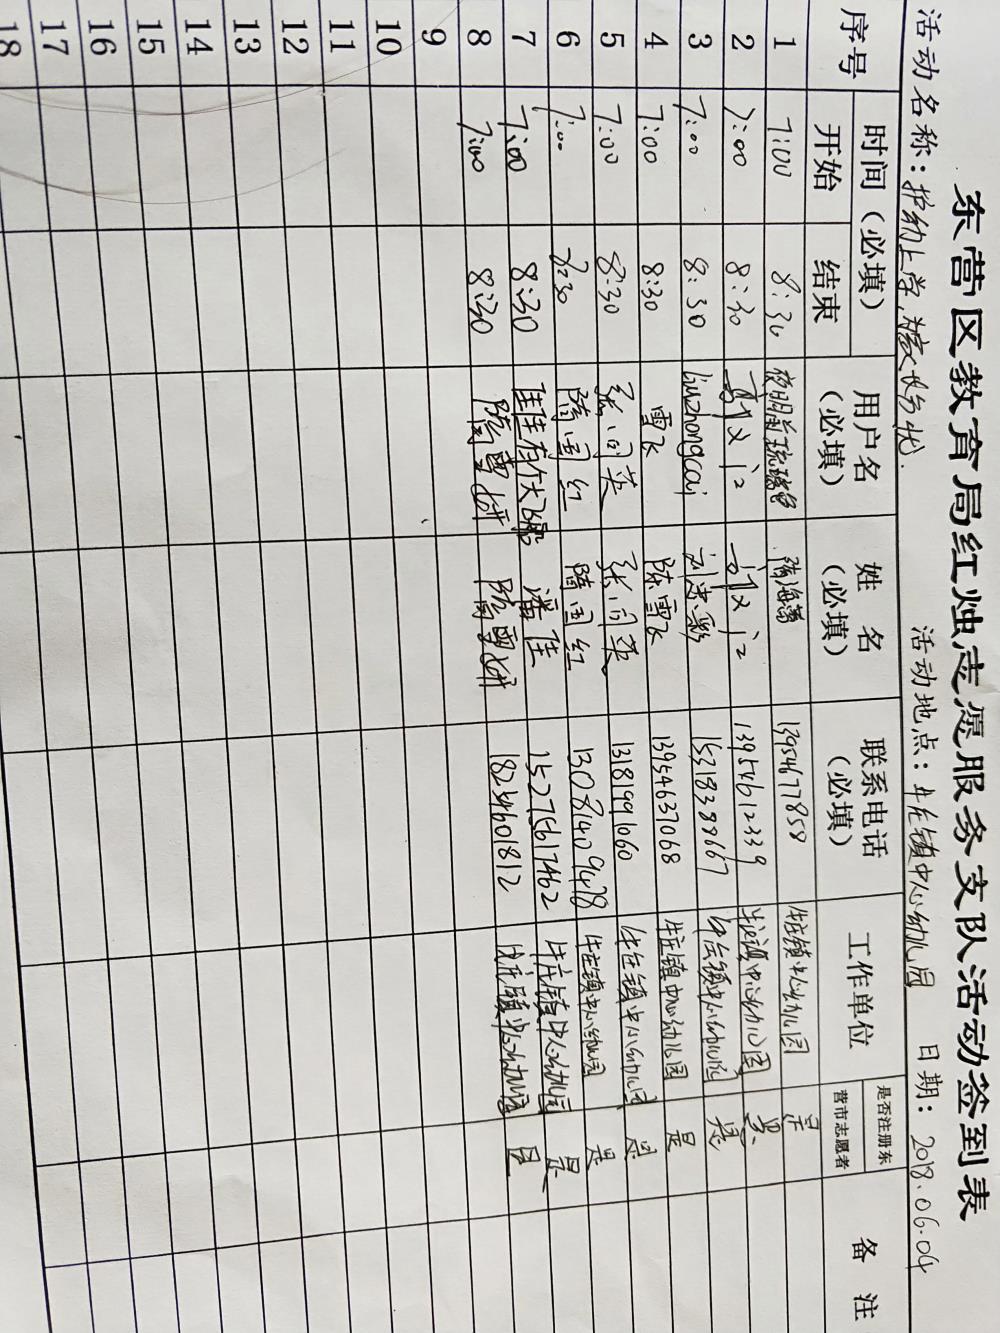 东营区教育局红烛志愿服务支队活动签到表
活动名称：护幼上学,为家长分忧. 活动地点：牛庄镇中心幼儿园 日期：2018.06.04
序号 时间（必填） 用户名（必填） 姓 名（必填） 联系电话（必填） 工作单位 是否注册东营市志愿者 备 注
开始 结束
1 7:00 8:30 夜明前琉璃色 海 13954677858 牛庄镇中心幼儿园 是
2 7:00 8:30 13954612339 牛庄镇中心幼儿园 是
3 7:00 8:30 liuzhongcai 刘忠彩 15318388667 牛庄镇中心幼儿园 是
4 7:00 8:30 雪飞 陈雪飞 13954637068 牛庄镇中心幼儿园 是
5 7:00 8:30 张同英 张同英 13181991660 牛庄镇中心幼儿园 是
6 7:00 8:30 隋国红 隋国红 13081409478 牛庄镇中心幼儿园 是
7 7:00 8:30 潘佳 15275617462 牛庄镇中心幼儿园 是
8 7:00 8:30 雪妍 雪妍 18254601812 牛庄镇中心幼儿园 是
9
10
11
12
13
14
15
16
17
18